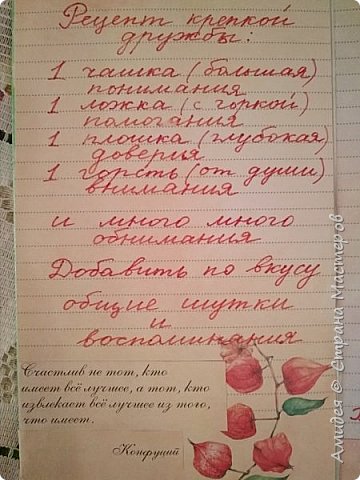 Рецепт крепкой
дружбы:
1 чашка (большая)
понимания
1 ложка (с горкой)
помогания
1 плошка (глубокая)
доверия
1 горсть (от души)
внимания
и много много
обнимания
Добавить по вкусу
общие шутки
и
воспоминания
Счастлив не тот, кто
имеет всё лучшее, а тот, кто
извлекает всё лучшее из того,
что имеет.
Конфуций
Амидея © Страна Мастеров